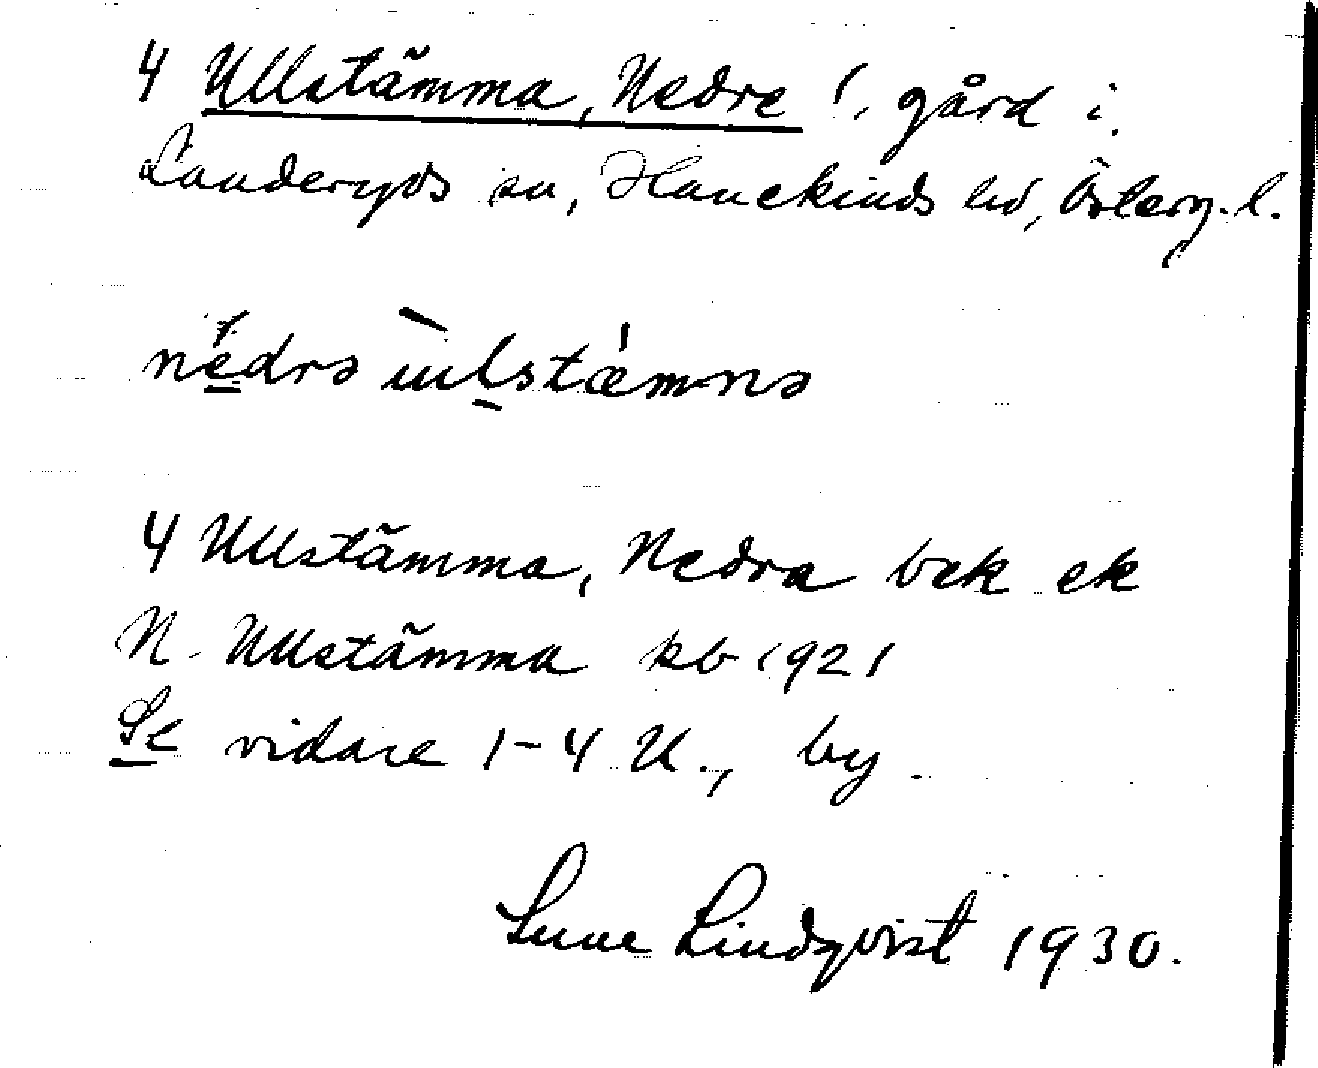 4 Ullstämma, Nedre 1, gård i
Landeryds sn, Hanekinds hd, Österg. l.
nedrə ulstæmnə
4 Ullstämma, Nedra bek ek
N. Ullstämma kb 1921
Se vidare 1-4 U., by
Sune Lindqvist 1930.